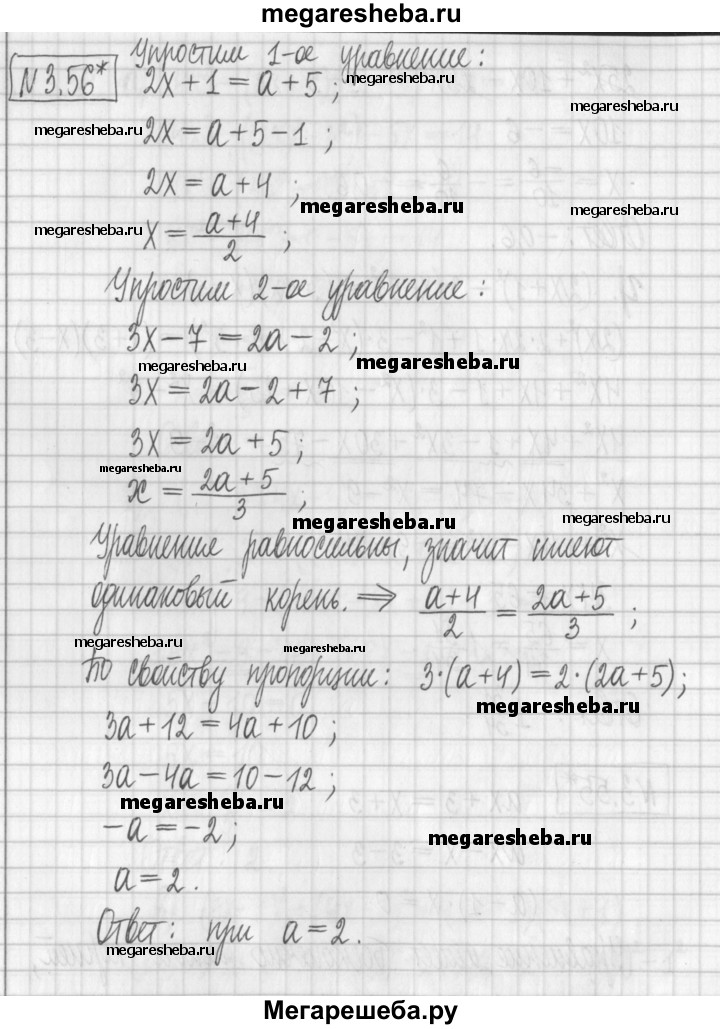 megaresheba.ru
N 3.56* Упростим 1-ое уравнение:
2x + 1 = a + 5 ; megaresheba.ru
megaresheba.ru
megaresheba.ru 2x = a + 5 - 1 ;
2x = a + 4 ;
megaresheba.ru megaresheba.ru
megaresheba.ru x = (a + 4)/2 ;
Упростим 2-ое уравнение :
3x - 7 = 2a - 2 ;
megaresheba.ru megaresheba.ru
3x = 2a - 2 + 7 ;
3x = 2a + 5 ;
megaresheba.ru
x = (2a + 5)/3 ;
megaresheba.ru megaresheba.ru
Уравнение равносильны, значит имеют
одинаковый корень. ⇒ (a + 4)/2 = (2a + 5)/3 ;
megaresheba.ru megaresheba.ru
По свойству пропорции: 3·(a + 4) = 2·(2a + 5);
megaresheba.ru
3a + 12 = 4a + 10 ;
3a - 4a = 10 - 12 ;
megaresheba.ru
-a = -2 ; megaresheba.ru
a = 2 .
Ответ: при a = 2 .
megaresheba.ru
Мегарешеба.ру